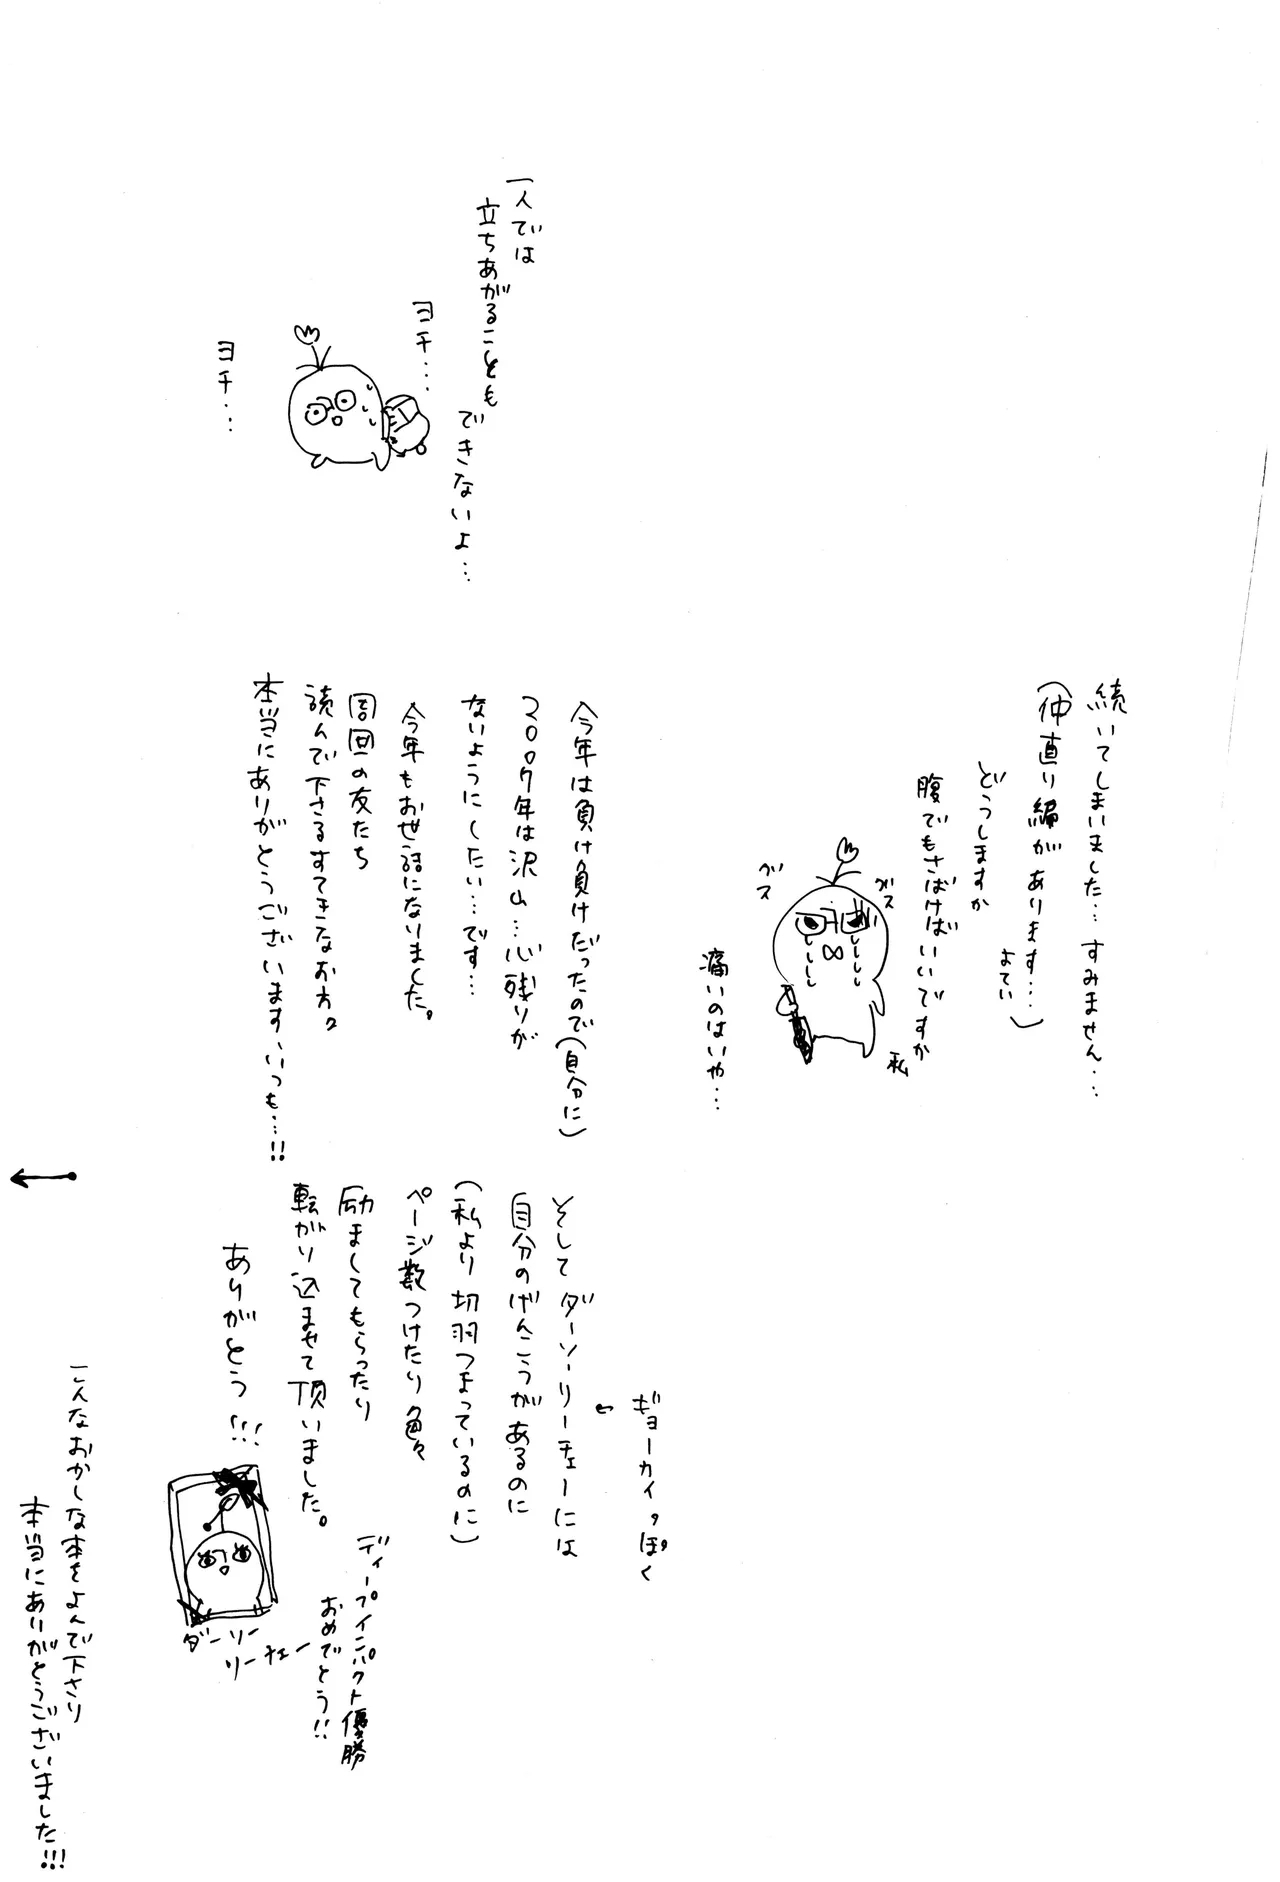 一人では
立ちあがることも
できないよ…
ヨチ…
ヨチ…
続いてしまいました…すみません…
(仲直り編があります…)
よてい
どうしますか
腹でもさばけばいいですか
私
グス
グス
痛いのはいや…
今年は負け負けだったので(自分に)
2007年は沢山…心残りが
ないようにしたい…です…
今年もお世話になりました。
周囲の友たち
読んで下さるすてきなお方。
本当にありがとうございます、いつも…!!
ギョーカイっぽく
そしてダーソーリーチェーには
自分のげんこうがあるのに
(私より切羽つまっているのに)
ページ数つけたり色々
励ましてもらったり
転がり込ませて頂いました。
ありがとう!!!
ディープインパクト優勝
おめでとう!!
ダーソー
リーチェー
こんなおかしな本をよんで下さり
本当にありがとうございました!!!